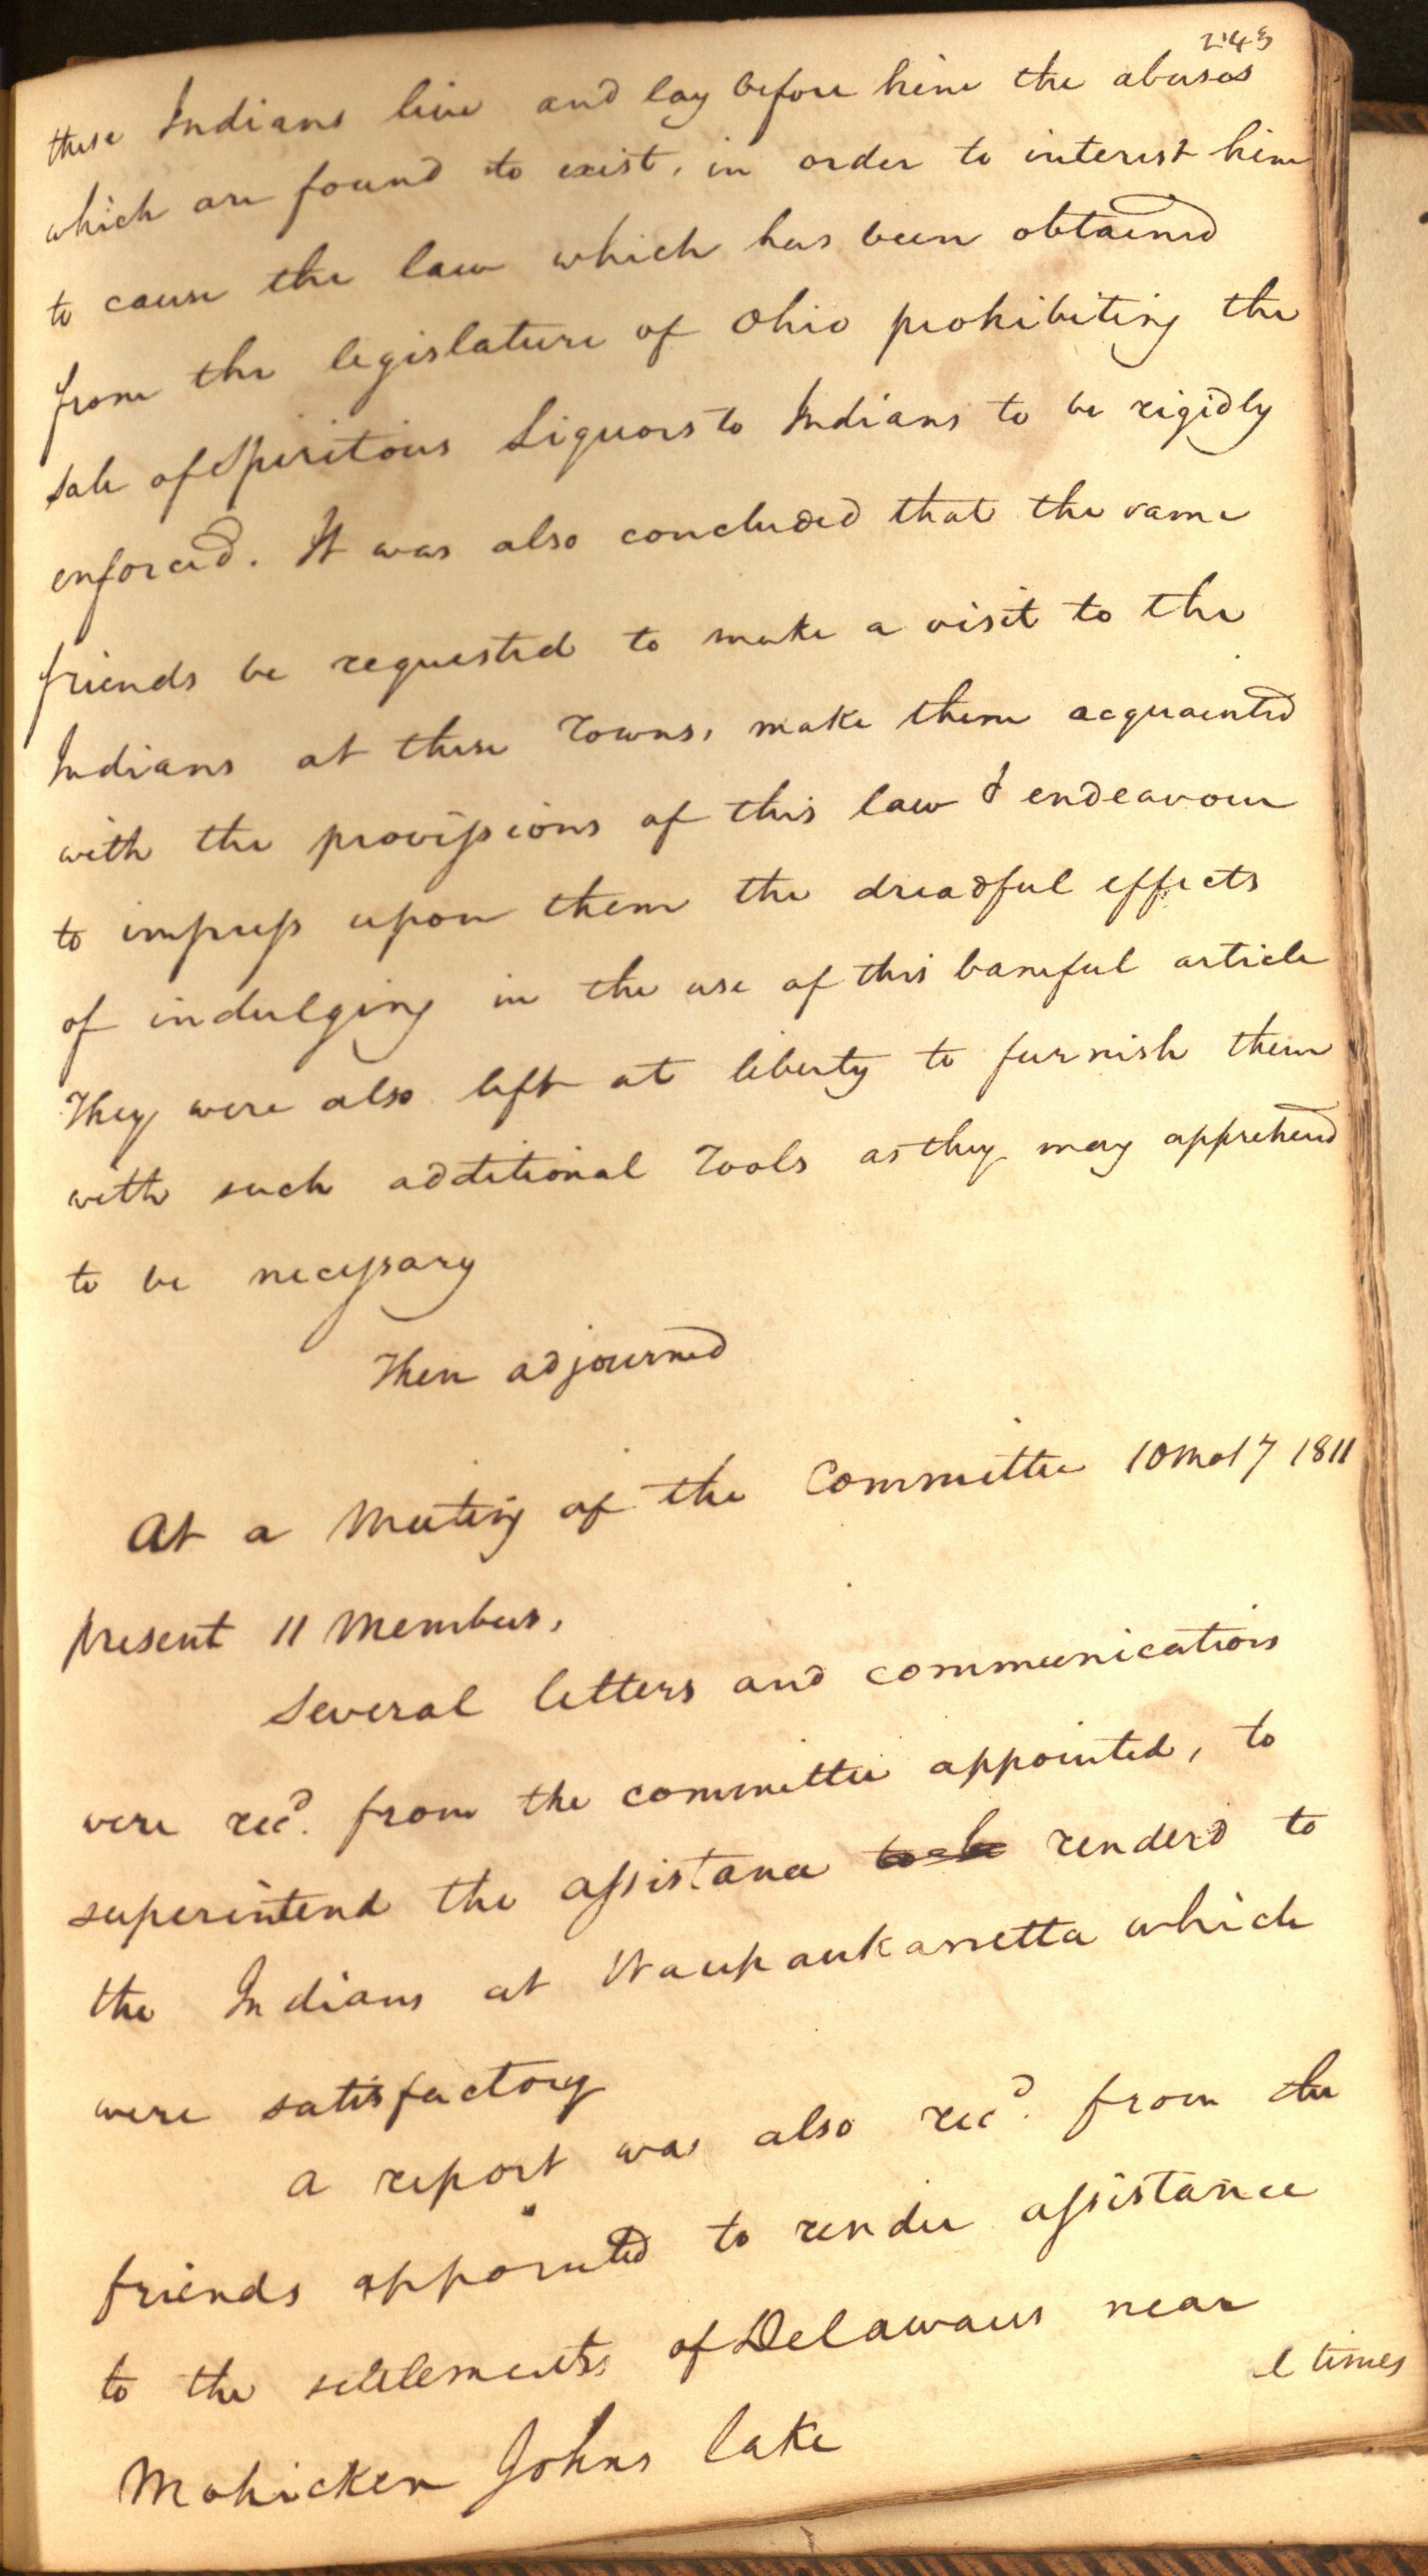 243
these Indians live and lay before him the abuses
which are found to exist, in order to interest him
to cause the law which has been obtained
from the legislature of Ohio prohibiting the
sale of Spiritous Liquors to Indians to be rigidly
enforced. It was also concluded that the same
friends be requested to make a visit to the
Indians at these Towns, make them acquainted
with the provissions of this law & endeavour
to impress upon them the dreadful effects
of indulging in the use of this baneful article
They were also left at liberty to furnish them
with such additional Tools as they may apprehend
to be necessary
Then adjourned
At a Meeting of the Committee 10 Mo 17 1811
present 11 Members,
Several letters and communications
were recd. from the committee appointed, to
superintend the assistance to be renderd to
the Indians at Waupaukannetta which
were satisfactory
A report was also recd. from the
friends appointed to render assistance
to the settlements of Delawares near
Mohicken Johns lake
l times